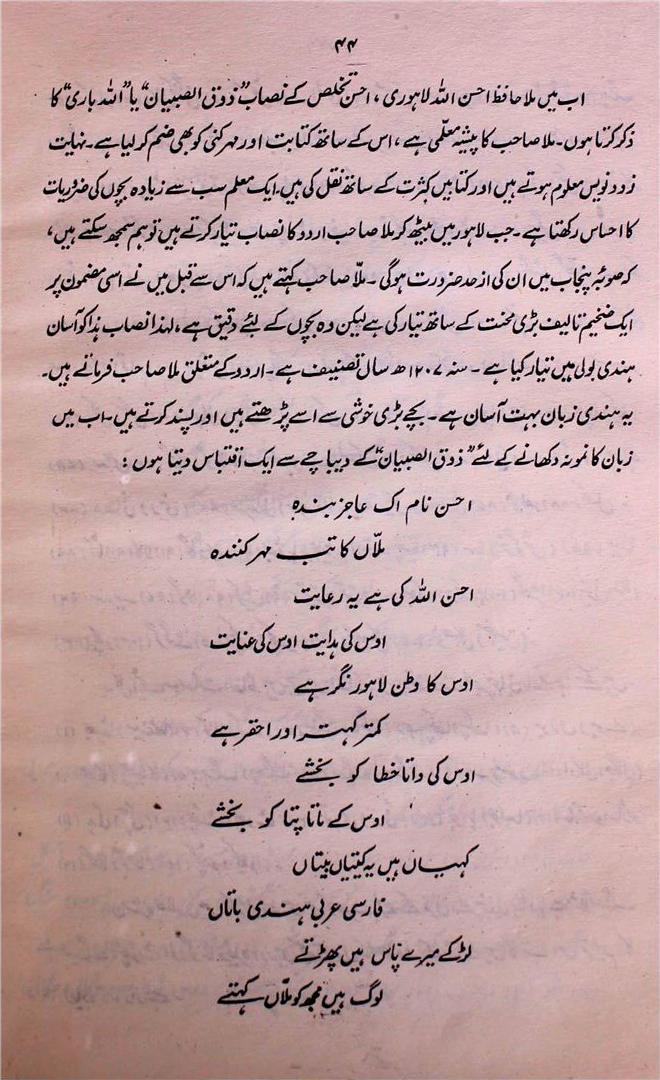 ۴۴
اب میں ملا حافظ احسن اللہ لاہوری، احسن تخلص کے نصاب "ذوق الصبیان" یا "اللہ باری" کا
ذکر کرتا ہوں۔ ملا صاحب کا پیشہ معلّمی ہے، اس کے ساتھ کتابت اور مہر کنی کو بھی ضم کر لیا ہے۔ نہایت
زود نویس معلوم ہوتے ہیں اور کتابیں کثرت کے ساتھ نقل کی ہیں۔ ایک معلم سب سے زیادہ بچوں کی ضروریات
کا احساس رکھتا ہے۔ جب لاہور میں بیٹھ کر ملا صاحب اردو کا نصاب تیار کرتے ہیں تو ہم سمجھ سکتے ہیں،
کہ صوبۂ پنجاب میں ان کی ازحد ضرورت ہوگی۔ ملّا صاحب کہتے ہیں کہ اس سے قبل میں نے اسی مضمون پر
ایک ضخیم تالیف بڑی محنت کے ساتھ تیار کی ہے لیکن وہ بچوں کے لئے دقیق ہے، لہذا نصاب ہذا کو آسان
ہندی بولی میں تیار کیا ہے۔ سنہ ۱۲۰۷ھ سال تصنیف ہے۔ اردو کے متعلق ملا صاحب فرماتے ہیں۔
یہ ہندی زبان بہت آسان ہے۔ بچے بڑی خوشی سے اسے پڑھتے ہیں اور پسند کرتے ہیں۔ اب میں
زبان کا نمونہ دکھانے کے لئے "ذوق الصبیان" کے دیباچے سے ایک اقتباس دیتا ہوں:
احسن نام اک عاجز بندہ
ملّاں کاتب مہر کنندہ
احسن اللہ کی ہے یہ رعایت
اوس کی ہدایت اوس کی عنایت
اوس کا وطن لاہور نگر ہے
کمتر کہتر اور احقر ہے
اوس کی داتا خطا کو بخشے
اوس کے ماتا پتا کو بخشے
کہیاں ہیں یہ کیتیاں بیتاں
فارسی عربی ہندی باتاں
لڑکے میرے پاس ہیں پھڑتے
لوگ ہیں مجھ کو ملّاں کہتے